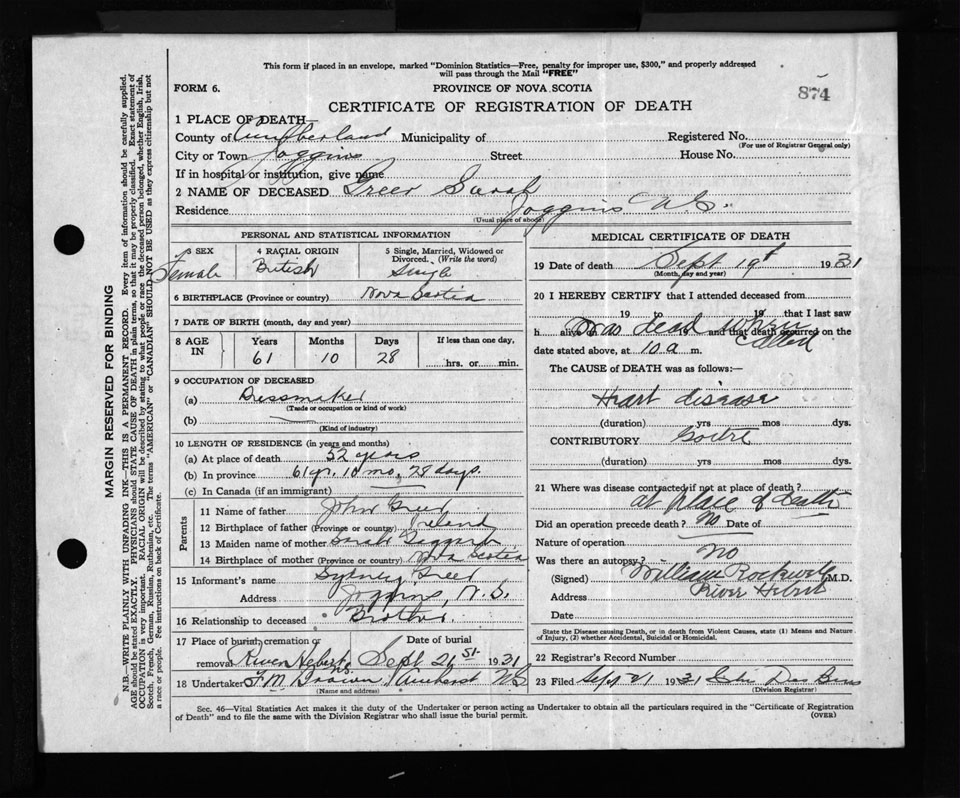 This form if placed in an envelope, marked "Dominion Statistics—Free, penalty for improper use, $300," and properly addressed
will pass through the Mail "FREE"
FORM 6.
PROVINCE OF NOVA SCOTIA
874
CERTIFICATE OF REGISTRATION OF DEATH
1 PLACE OF DEATH—
County of Cumberland Municipality of Registered No.
(For use of Registrar General only)
City or Town Joggins Street House No.
If in hospital or institution, give name
2 NAME OF DECEASED Greer Sarah
Residence Joggins N.S.
(Usual place of abode)
PERSONAL AND STATISTICAL INFORMATION
3 SEX
Female
4 RACIAL ORIGIN
British
5 Single, Married, Widowed or
Divorced. (Write the word)
Single
6 BIRTHPLACE (Province or country) Nova Scotia
7 DATE OF BIRTH (month, day and year)
8 AGE
IN
Years Months Days
61 10 28
If less than one day,
hrs. or min.
9 OCCUPATION OF DECEASED
(a) Dressmaker
(Trade or occupation or kind of work)
(b)
(Kind of industry)
10 LENGTH OF RESIDENCE (in years and months)
(a) At place of death 52 years
(b) In province 61 yr, 10 mo, 28 days.
(c) In Canada (if an immigrant)
Parents
11 Name of father John Greer
12 Birthplace of father (Province or country) Ireland
13 Maiden name of mother Sarah
14 Birthplace of mother (Province or country) Nova Scotia
15 Informant's name Sydney Greer
Address Joggins, N.S.
16 Relationship to deceased Brother
17 Place of burial, cremation or
removal River Hebert N.S.
Date of burial
Sept 21st 1931
18 Undertaker F.M. Brown Amherst NS
(Name and address)
MEDICAL CERTIFICATE OF DEATH
19 Date of death Sept 19th 1931
(Month, day and year)
20 I HEREBY CERTIFY that I attended deceased from
19 to 19 that I last saw
h alive on 19 and that death occurred on the
Was dead when called
date stated above, at 10 a m.
The CAUSE of DEATH was as follows:—
Heart disease
(duration) yrs mos dys.
CONTRIBUTORY Goitre
(duration) yrs mos dys.
21 Where was disease contracted if not at place of death?
at place of death
Did an operation precede death? No Date of
Nature of operation
Was there an autopsy? No
(Signed) William Rockwell M.D.
Address River Hebert
Date
State the Disease causing Death, or in death from Violent Causes, state (1) Means and Nature
of Injury, (2) whether Accidental, Suicidal or Homicidal.
22 Registrar's Record Number
23 Filed Sept 21 1931
(Division Registrar)
Sec. 46—Vital Statistics Act makes it the duty of the Undertaker or person acting as Undertaker to obtain all the particulars required in the "Certificate of Registration
of Death" and to file the same with the Division Registrar who shall issue the burial permit.
(OVER)
MARGIN RESERVED FOR BINDING
N.B.—WRITE PLAINLY WITH UNFADING INK—THIS IS A PERMANENT RECORD. Every item of information should be carefully supplied.
AGE should be stated EXACTLY. PHYSICIANS should STATE CAUSE OF DEATH in plain terms, so that it may be properly classified. Exact statement of
OCCUPATION is very important. RACIAL ORIGIN will be described by stating to what people or race the deceased person belonged, whether English, Irish,
Scotch, French, German, Russian, Ruthenian, etc. The terms "AMERICAN" or "CANADIAN" SHOULD NOT BE USED as they express citizenship but not
a race or people. See instructions on back of Certificate.